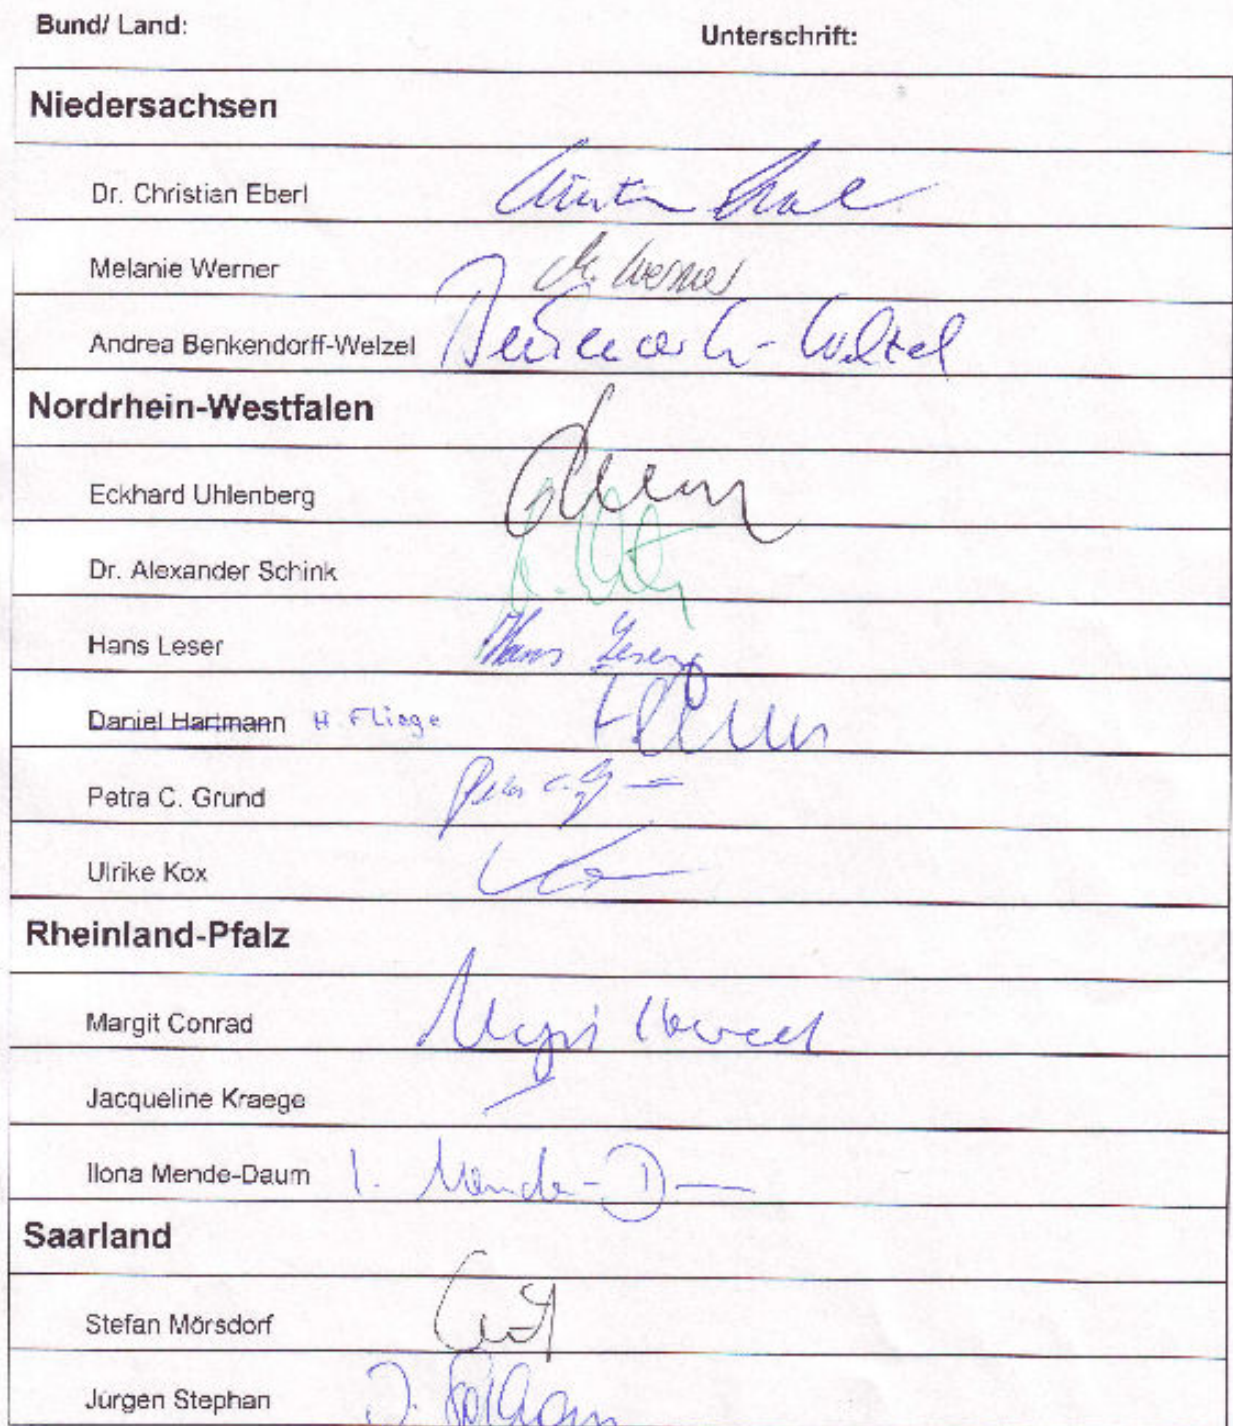 Bund/ Land:
Unterschrift:
Niedersachsen
Dr. Christian Eberl
Melanie Werner M. Werner
Andrea Benkendorff-Welzel
Nordrhein-Westfalen
Eckhard Uhlenberg
Dr. Alexander Schink
Hans Leser Hans Leser
Daniel Hartmann H. Fliege
Petra C. Grund
Ulrike Kox
Rheinland-Pfalz
Margit Conrad
Jacqueline Kraege
Ilona Mende-Daum I. Mende-D
Saarland
Stefan Mörsdorf
Jürgen Stephan